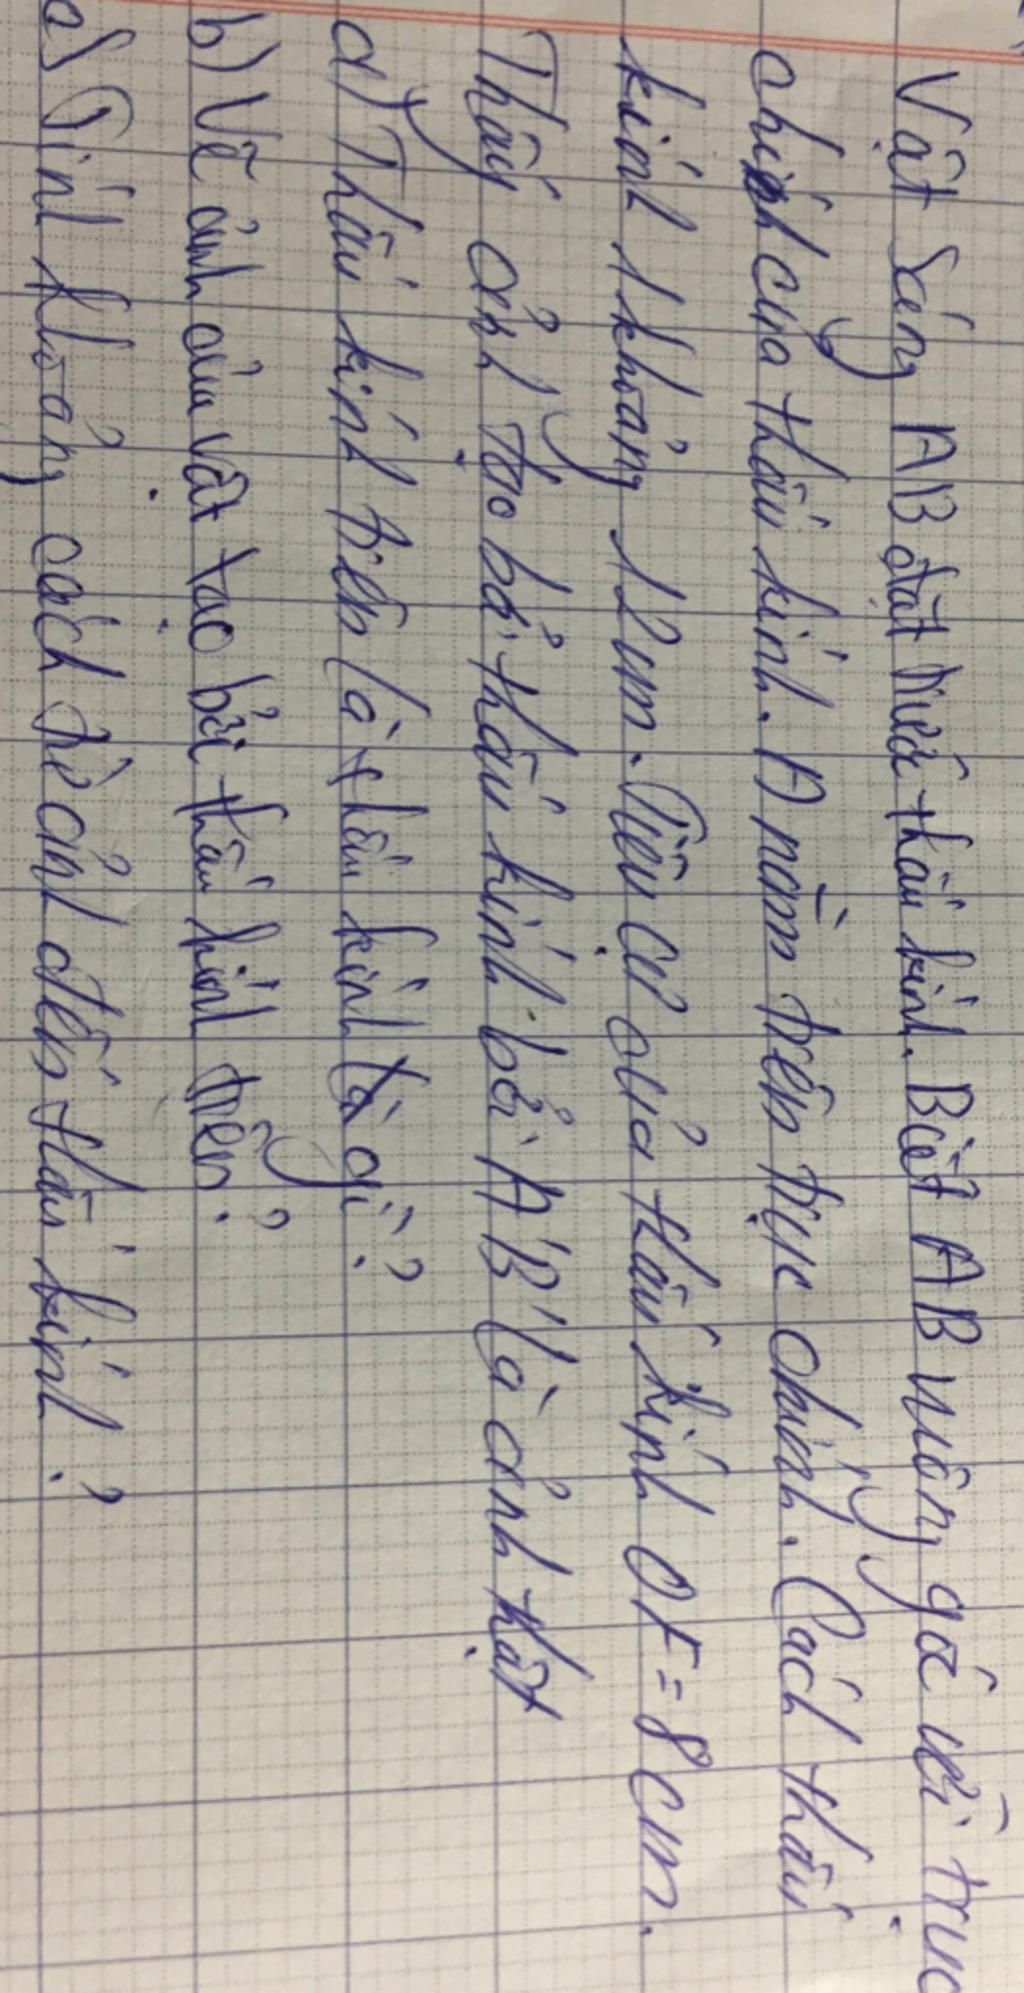 Vật sáng AB đặt trước thấu kính. Biết AB vuông góc với trục
chính của thấu kính. A nằm trên trục chính. Cách thấu
kính 1 khoảng 12cm. Tiêu cự của thấu kính OF = 8cm.
Thấy ảnh tạo bởi thấu kính bởi A'B' là ảnh thật
a) Thấu kính trên là thấu kính là gì?
b) Vẽ ảnh của vật tạo bởi thấu kính trên?
c) Tính khoảng cách từ ảnh đến thấu kính?